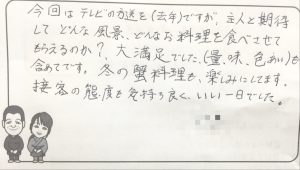 今回はテレビの方送を(去年)ですが、主人と期待
して どんな風景、どんなお料理を食べさせて
もらえるのか?大満足でした。(量、味、色あい)も
含めてです。冬の蟹料理も、楽しみにしてます。
接客の態度も気持ち良く、いい一日でした。